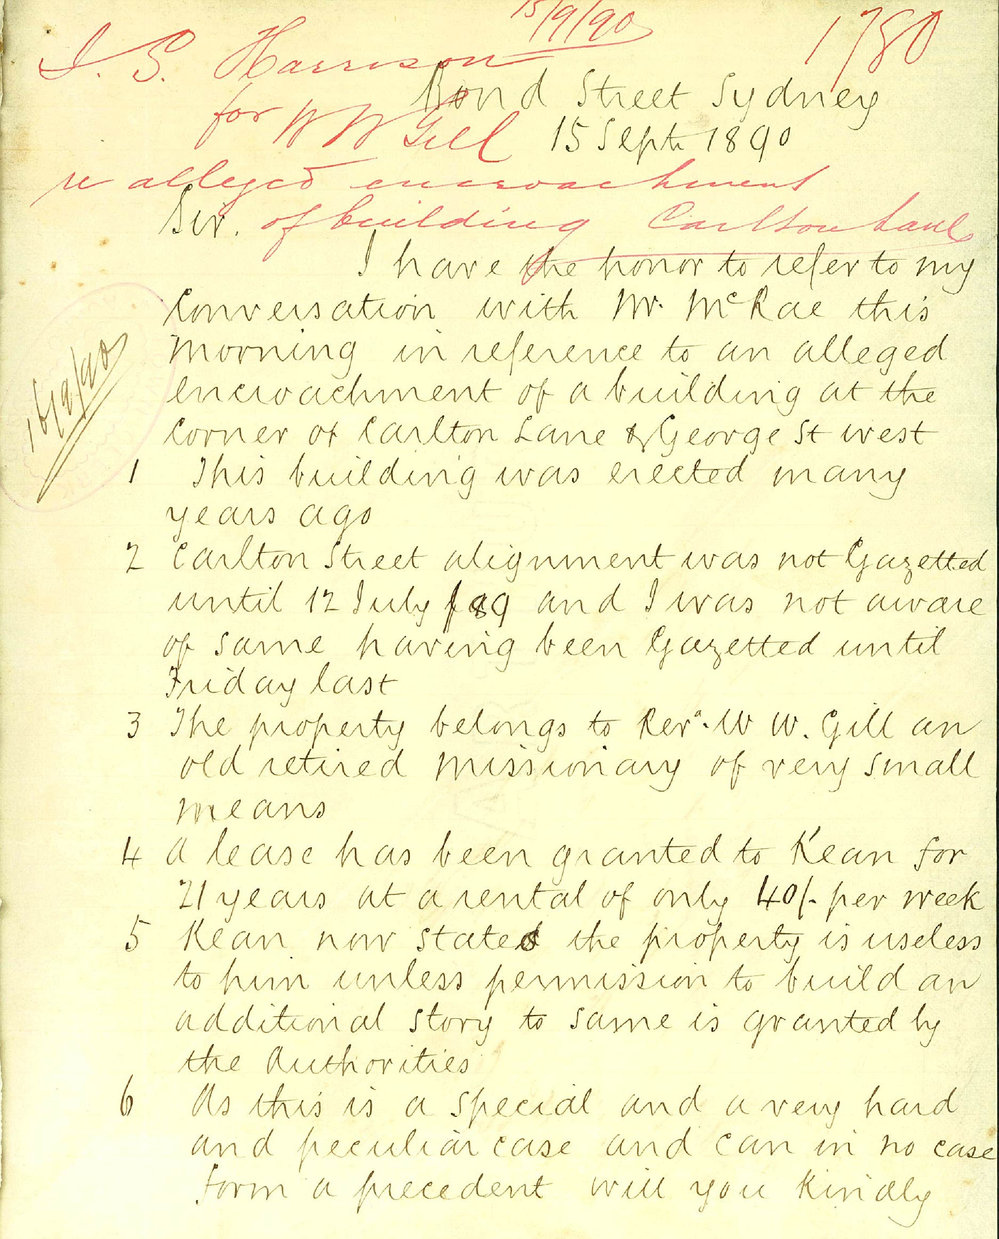 15/9/90
J. S. Harrison
1780
for W W Gill
re alleged encroachment
of building Carlton Lane
Bond Street Sydney
15 Sept 1890
16/9/90
Sir.
I have the honor to refer to my
Conversation with Mr. McRae this
Morning in reference to an alleged
encroachment of a building at the
Corner of Carlton Lane & George St west
1 This building was erected many
years ago
2 Carlton Street alignment was not Gazetted
until 12 July /89 and I was not aware
of same having been Gazetted until
Friday last
3 The property belongs to Revd. W W. Gill an
old retired Missionary of very small
means
4 A lease has been granted to Kean for
21 years at a rental of only 40/- per week
5 Kean now states the property is useless
to him unless permission to build an
additional story to same is granted by
the Authorities
6 As this is a special and a very hard
and peculiar case and can in no case
form a precedent will you kindly